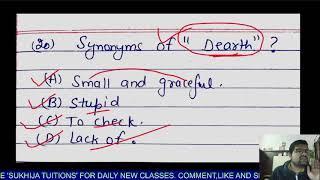 (20) Synonyms of "Dearth" ?
(A) Small and graceful.
(B) Stupid
(C) To check.
(D) Lack of.
E 'SUKHIJA TUITIONS' FOR DAILY NEW CLASSES. COMMENT,LIKE AND S